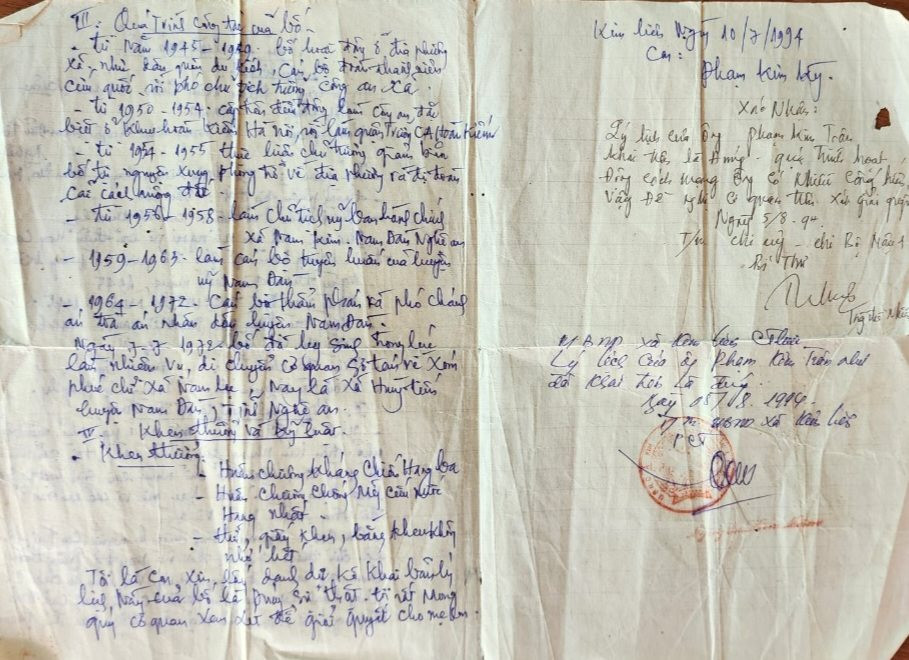 III: Quá trình công tác của bố -
- từ năm 1945 - 1950 bố hoạt động ở địa phương
xã, như dân quân du kích, cán bộ đoàn thanh niên
cứu quốc, rồi phó chủ tịch trưởng công an xã.
- từ 1950 - 1954 - cấp trên điều động làm công an đặc
biệt ở khu hoàn kiếm Hà nội, rồi làm quận Trưởng CA Hoàn Kiếm
- từ 1954 - 1955 thực hiện chủ trương giảm biên
bố tự nguyện xung phong trở về địa phương và đi đoàn
cải cách ruộng đất.
- từ 1956 - 1958 - làm chủ tịch uỷ ban hành chính
xã Nam Kim - Nam Đàn Nghệ an
- 1959 - 1963 - làm cán bộ tuyên huấn của huyện
uỷ Nam Đàn
- 1964 - 1972 - Cán bộ thẩm phán và phó chánh
án toà án nhân dân huyện Nam Đàn.
Ngày 7-7-1972 - bố đã hy sinh trong lúc
làm nhiệm vụ, di chuyển cơ quan sơ tán về xóm
phú chỉ xã Nam, Nay là xã Hùng tiến
huyện Nam Đàn, tỉnh Nghệ an.
IV Khen thưởng và kỷ luật.
- Khen thưởng
- Huân chương kháng chiến Hạng ba
- Huân chương chống Mỹ cứu nước
Hạng nhất.
- giấy khen, bằng khen không
nhớ hết
Tôi là con, xin lấy danh dự, kê khai bản lý
lịch, này của bố là đúng sự thật. tôi rất mong
quý cơ quan xem xét để giải quyết cho mẹ con.
Kim liên Ngày 10/7/1994
Con:
Phạm Kim Kỳ.
Xác Nhận:
Lý lịch của Ông Phạm Kim Trân
khai trên là đúng - quá trình hoạt
động cách mạng Ông có nhiều cống hiến,
vậy Đề nghị Cơ quan xét giải quyết
Ngày 5/8-94
T/m chi uỷ - chi Bộ
Bí Thư
UBND xã Kim liên
Lý lịch của ông Phạm Kim Trân như
đã khai trên là đúng.
Ngày 08/8.1994
T/m UBND xã Kim liên
PCT